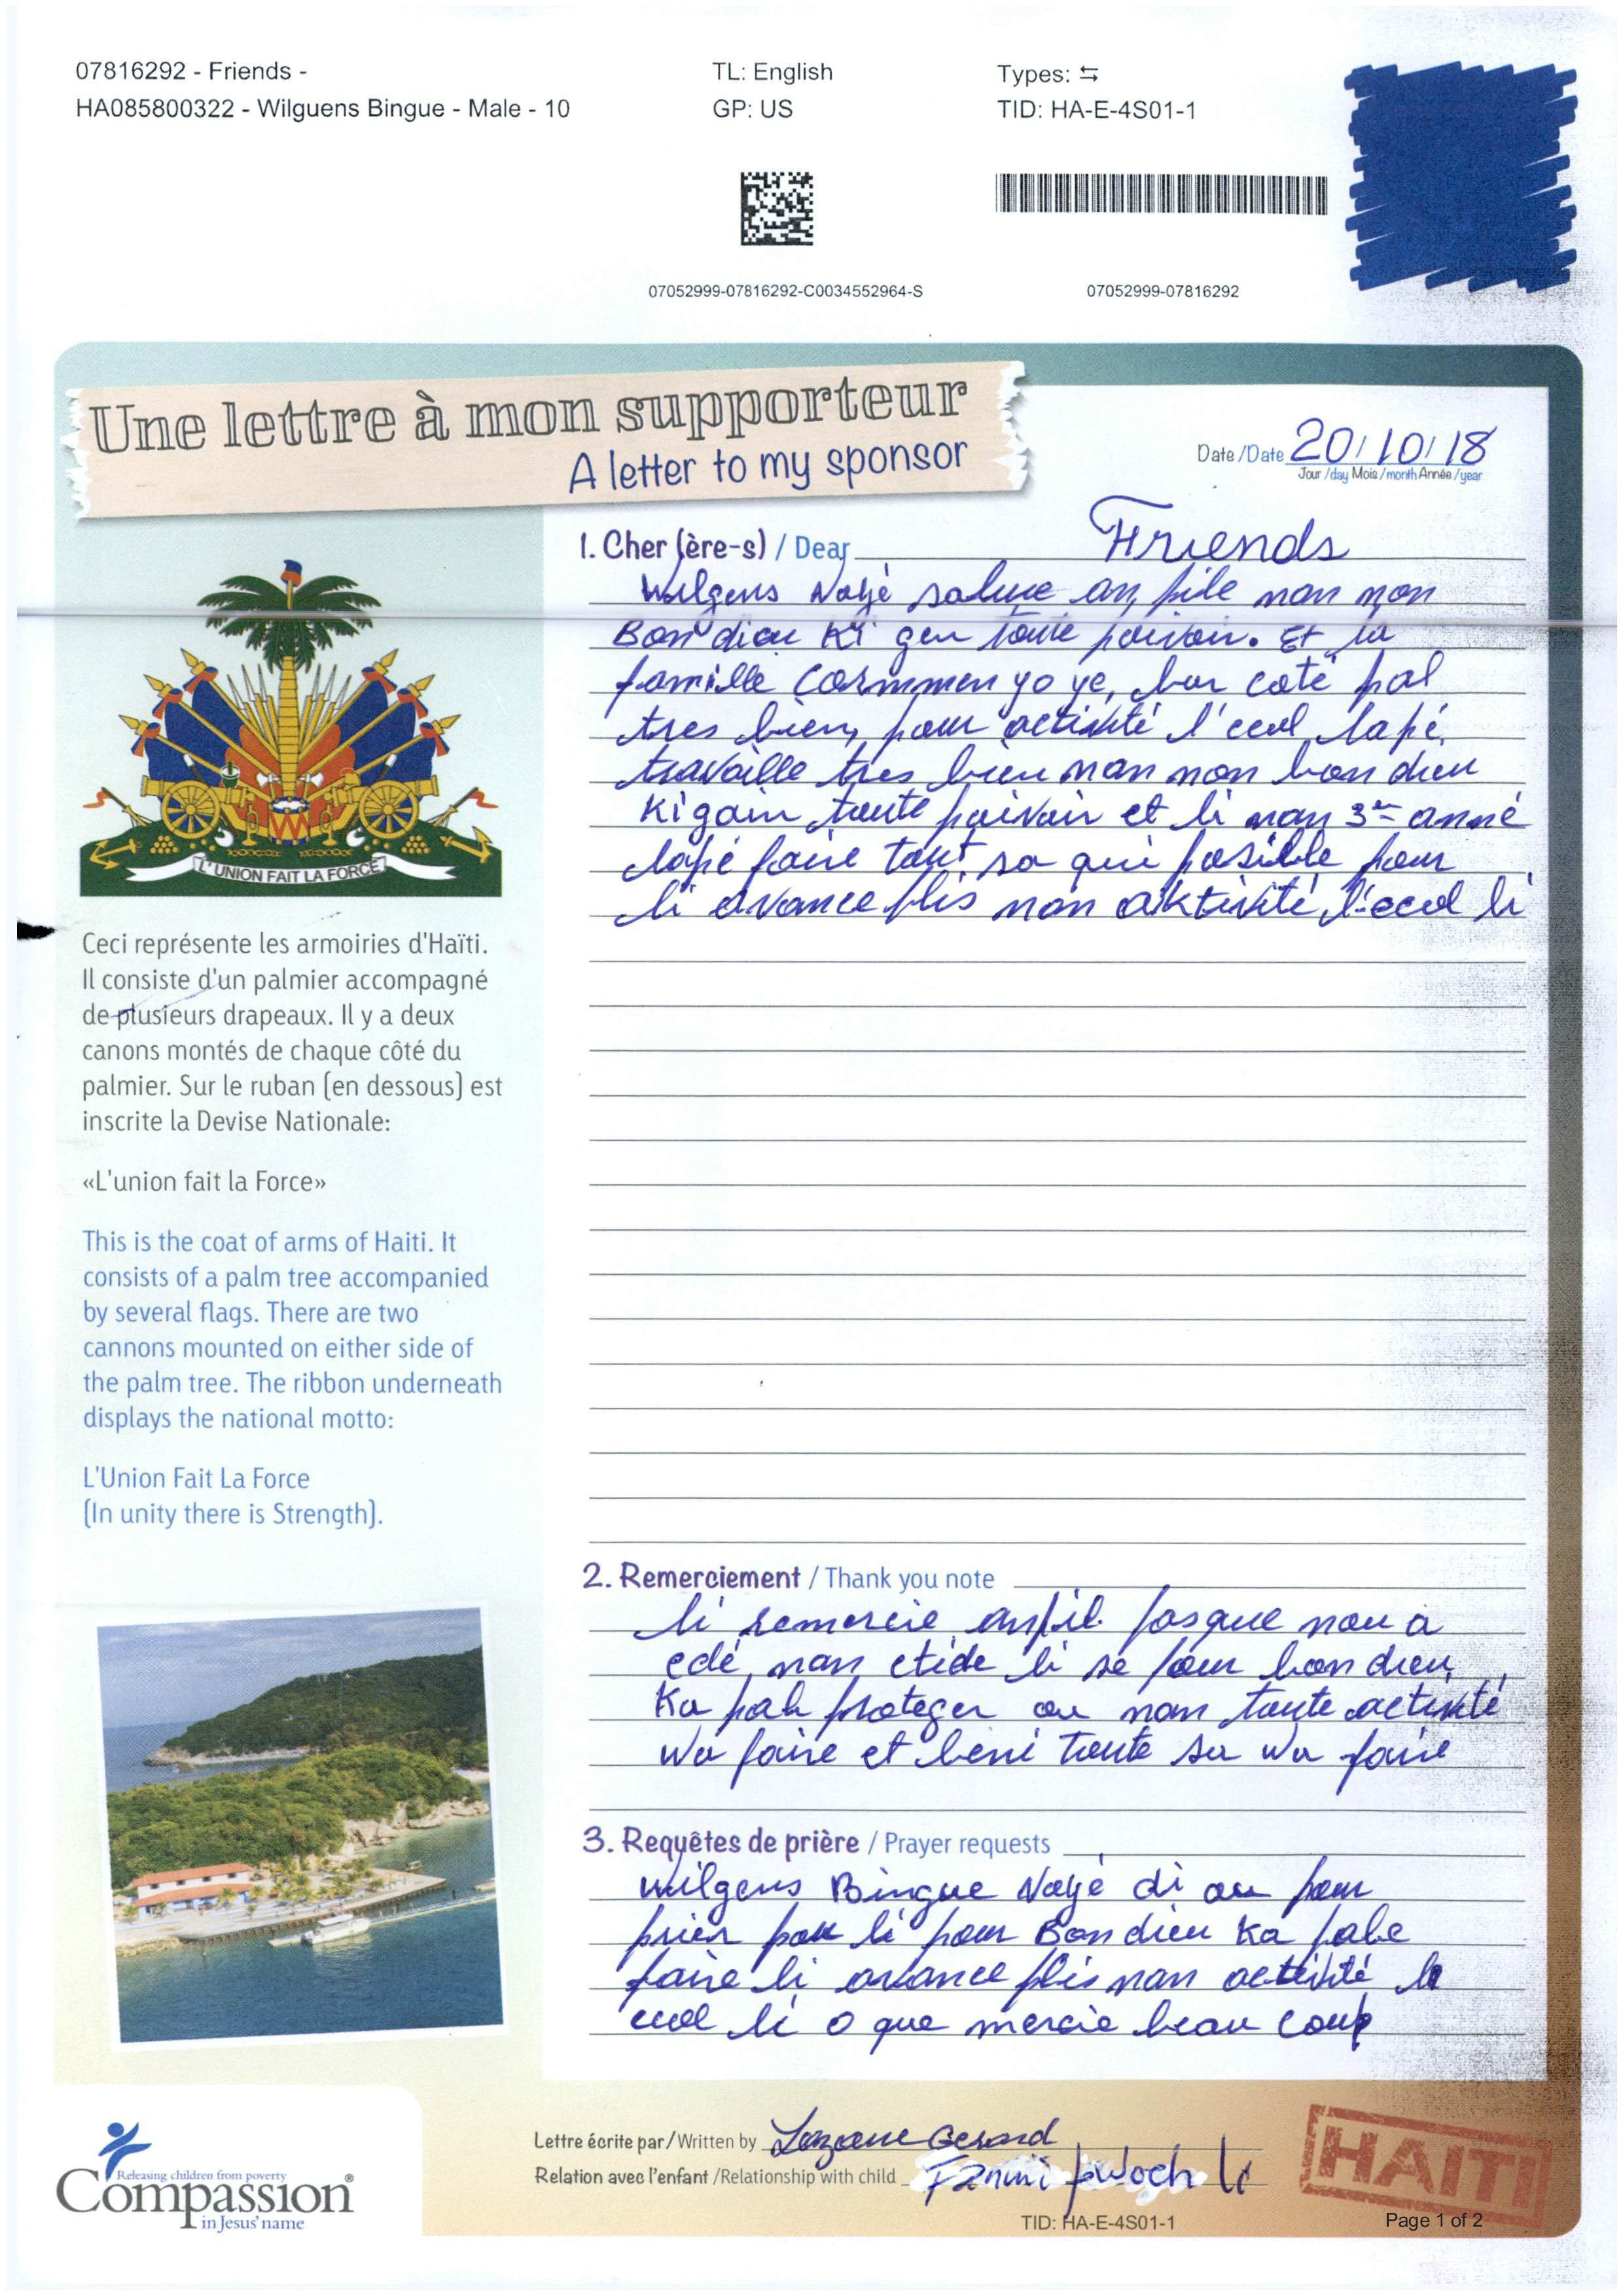 07816292 - Friends -
HA085800322 - Wilguens Bingue - Male - 10
TL: English
GP: US
Types: ⇆
TID: HA-E-4S01-1
07052999-07816292-C0034552964-S
07052999-07816292
Une lettre à mon supporteur
A letter to my sponsor
Date/Date 20/10/18
Jour/day Mois/month Année/year
1. Cher (ère-s) / Dear Friends
Wilgens voyé salue an pile nan non
Bon dieu Ki gen toute pouvoir. Et la
famille commen yo ye, bor coté pal
tres bien, pour activité l'ecol lapé
travaille tres bien nan non bon dieu
Ki gain toute poivoir et li nan 3em anné
lapé faire tout sa qui posible pour
li avance plis nan aktivité l'ecol li
L'UNION FAIT LA FORCE
Ceci représente les armoiries d'Haïti.
Il consiste d'un palmier accompagné
de plusieurs drapeaux. Il y a deux
canons montés de chaque côté du
palmier. Sur le ruban (en dessous) est
inscrite la Devise Nationale:
«L'union fait la Force»
This is the coat of arms of Haiti. It
consists of a palm tree accompanied
by several flags. There are two
cannons mounted on either side of
the palm tree. The ribbon underneath
displays the national motto:
L'Union Fait La Force
(In unity there is Strength).
2. Remerciement / Thank you note
li remercie anpil pasque nou a
edé nan etide li se pour bon dieu
Ka pab proteger ou nan toute activité
wa faire et beni toute sa wa faire
3. Requêtes de prière / Prayer requests
Wilgens Bingue voyé di ou pour
prier pou li pour Bon dieu Ka pabe
faire li avance plis nan activité l
ecol li o que mercie beau coup
Lettre écrite par/Written by Gerard
Relation avec l'enfant /Relationship with child Fanmi pwoch li
HAITI
Releasing children from poverty
Compassion®
in Jesus' name
TID: HA-E-4S01-1
Page 1 of 2